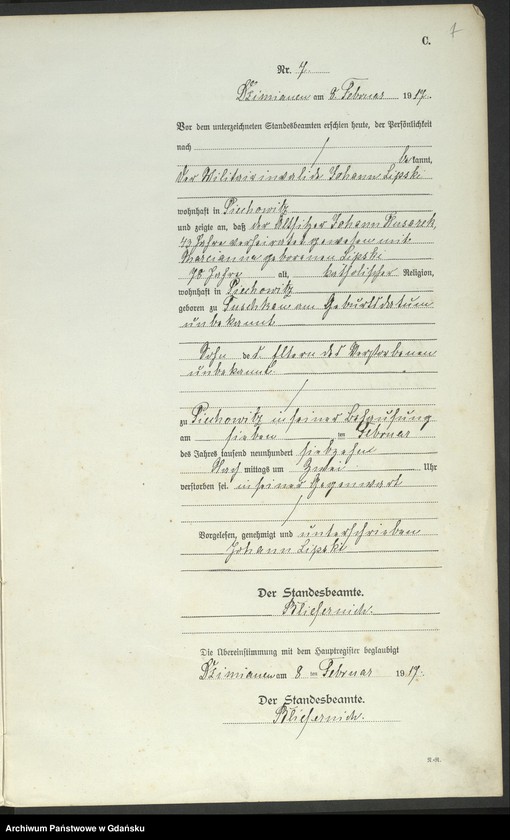 7
C.
Nr. 7.
Dzimianen am 8 Februar 1917.
Vor dem unterzeichneten Standesbeamten erschien heute, der Persönlichkeit
nach
be kannt,
der Militärinvalide Johann Lipski
wohnhaft in Piechowitz
und zeigte an, daß der Altsitzer Johann Kusarek,
43 Jahre verheiratet gewesen mit
Marcianna geborenen Lipski
70 Jahre alt, katholischer Religion,
wohnhaft in Piechowitz
geboren zu am Geburtsdatum
unbekannt
Sohn de s. Eltern des Verstorbenen
unbekannt
zu Piechowitz in seiner Behausung
am sieben ten Februar
des Jahres tausend neunhundert siebzehn
Nach mittags um Zwei Uhr
verstorben sei. in seiner Gegenwart
Vorgelesen, genehmigt und unterschrieben
Johann Lipski
Der Standesbeamte.
Die Übereinstimmung mit dem Hauptregister beglaubigt
Dzimianen am 8 ten Februar 1917.
Der Standesbeamte.
Archiwum Państwowe w Gdańsku